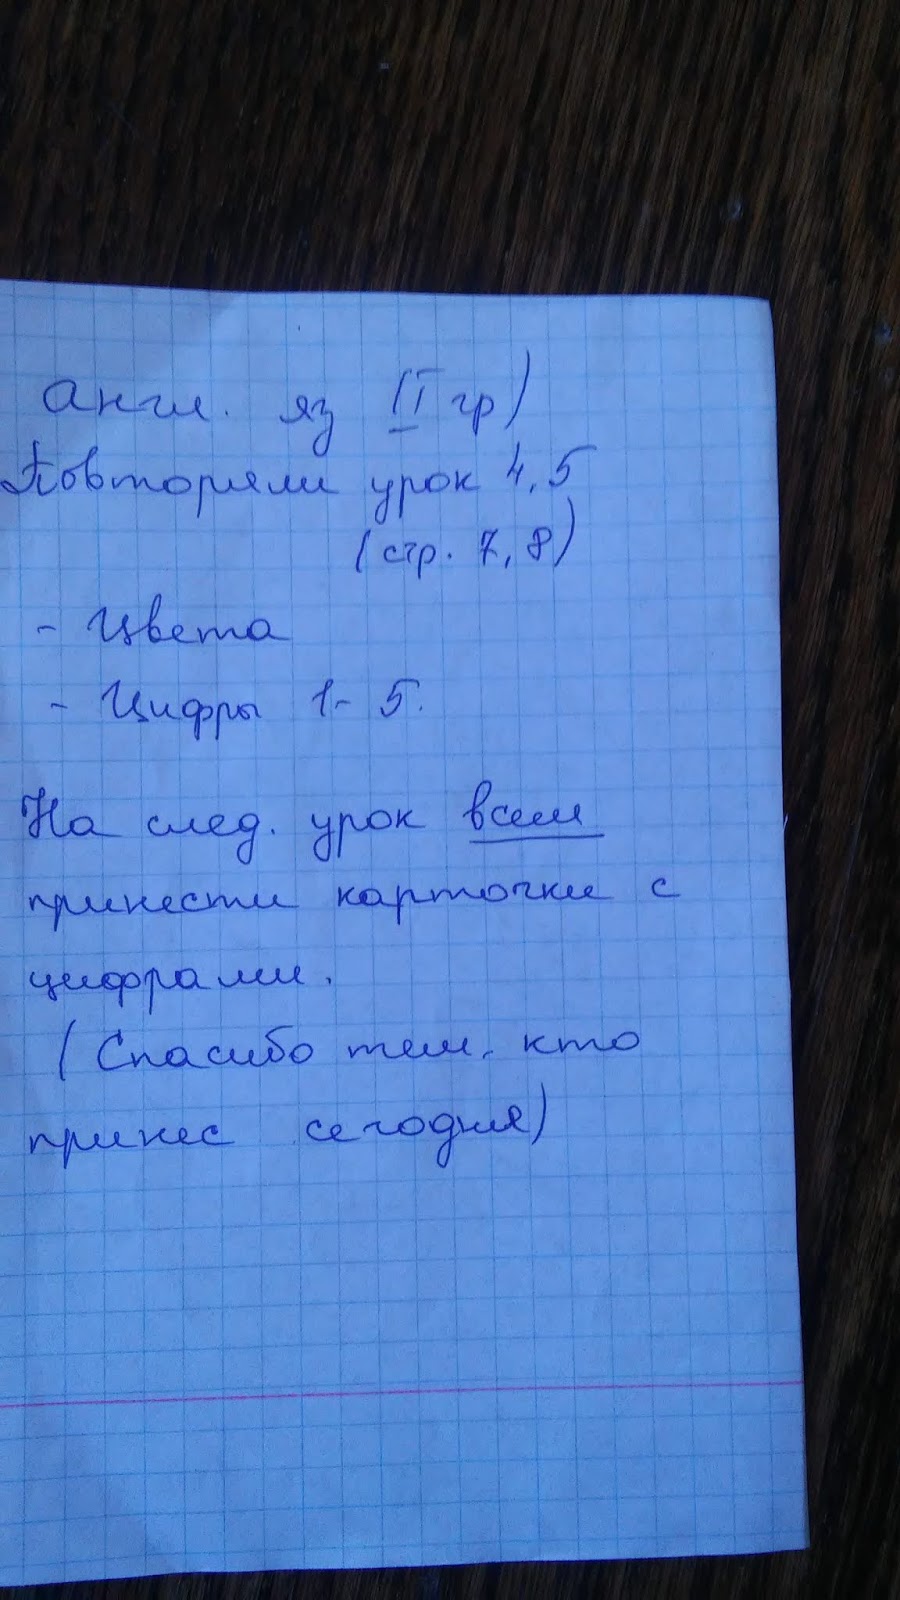 Англ. яз (I гр)
Повторяли урок 4,5
(стр. 7,8)
- Цвета
- Цифры 1-5.
На след. урок всем
принести карточки с
цифрами.
(Спасибо тем, кто
принес сегодня)